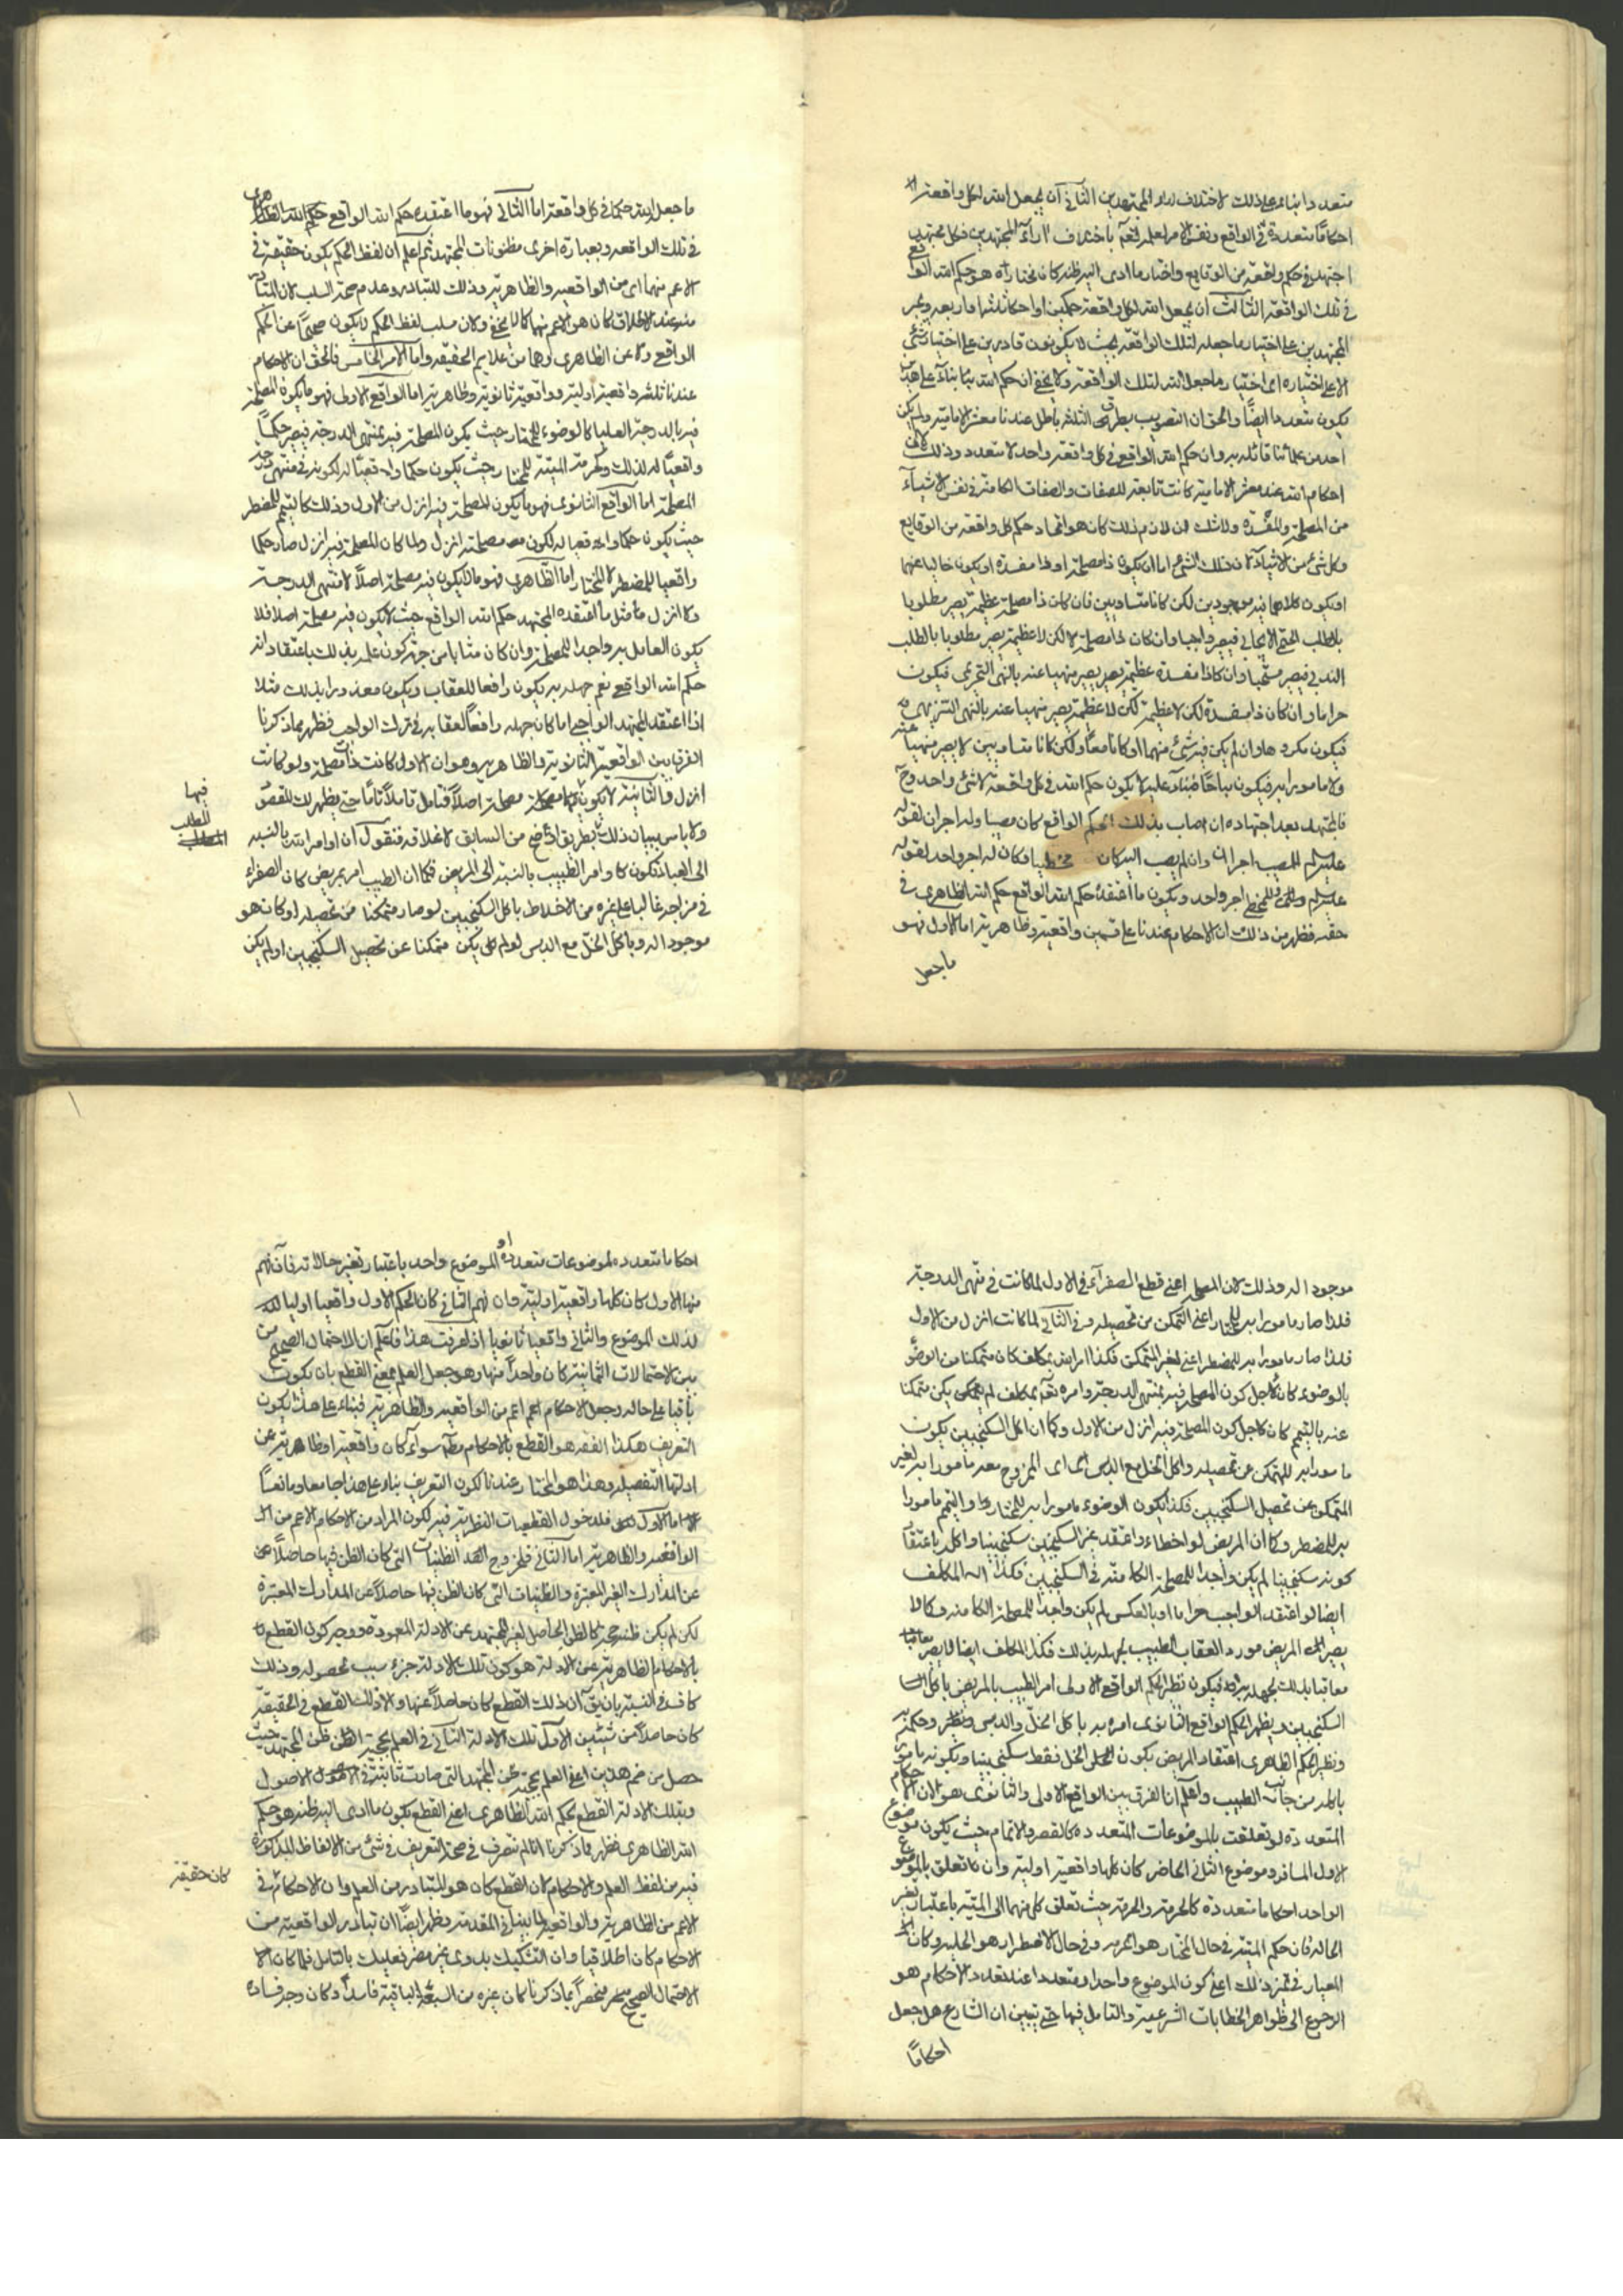 متعددا بناء على ذلك لاختلاف اراء المجتهدين الثاني ان يجعل الله لكل واقعة
احكامًا متعددة في الواقع ونفس الامر لعلمه تعالى باختلاف اراء المجتهدين فكل مجتهد
اجتهد في حكم واقعة من الوقايع واختار ما ادى اليه ظنه كان مختاره هو حكم الله الواقعي
في تلك الواقعة الثالث ان يجعل الله لكل واقعة حكمين او احكامًا ثلثة او اربعة ويجبر
المجتهدين على اختيار ما جعله لتلك الواقعة بحيث لا يكونون قادرين على اختيار شئ
الا على اختياره اى اختيار ما جعل الله لتلك الواقعة ولا يخفى ان حكم الله بناء على هذا
يكون متعددا ايضًا والحق ان التصويب بطرقه الثلثة باطل عندنا معشر الامامية ولم يكن
احد من علمائنا قائلا به وان حكم الله الواقعي في كل واقعة واحد لا متعدد وذلك لان
احكام الله عند معشر الامامية كانت تابعة للصفات والصفات الكامنة في نفس الاشياء
من المصلحة والمفسدة ولا شك ان لازم ذلك كان هو اتحاد حكم كل واقعة من الوقايع
وكل شئ من الاشياء لان ذلك الشئ اما ان يكون ذا مصلحة او ذا مفسدة او يكون خاليا عنهما
او يكون كلاهما فيه موجودين لكن كانا متساويين فان كان ذا مصلحة عظيمة يصير مطلوبا
بالطلب الحتم الايجابي فيصير واجبا وان كان ذا مصلحة لا لكن لا عظيمة يصير مطلوبا بالطلب
الندبي فيصير مستحبا وان كان ذا مفسدة عظيمة يصير منهيا عنه بالنهى التحريمى فيكون
حراما وان كان ذا مفسدة لكن لا عظيمة يصير منهيا عنه بالنهى التنزيهى
فيكون مكروها وان لم يكن فيه شئ منهما او كانا معًا ولكن كانا متساويين لا يصير منهيا عنه
ولا مامورا به فيكون مباحًا فبناء عليه لا يكون حكم الله في كل واقعة الا شئ واحد وح
فالمجتهد بعد اجتهاده ان اصاب بذلك الحكم الواقع كان مصيبا وله اجران لقوله
عليه السلام للمصيب اجران وان لم يصب اليه كان مخطيا وكان له اجر واحد لقوله
عليه السلام وللمخطى اجر واحد ويكون ما اعتقده حكم الله الواقع حكم الله الظاهرى في
حقه فظهر من ذلك ان الاحكام عندنا على قسمين واقعية وظاهرية اما الاول فهو
ما جعل
ما جعل الله حكمًا في كل واقعة اما الثاني فهو ما اعتقده حكم الله الواقع حكم الله الظاهرى
في تلك الواقعة وبعبارة اخرى مظنونات المجتهد ثم اعلم ان لفظ الحكم يكون حقيقة في
الاعم منهما اى من الواقعية والظاهرية وذلك للتبادر وعدم صحة السلب لان المتبادر
منه عند الاطلاق كان هو الاعم منهما كما لا يخفى وكان سلب لفظ الحكم لا يكون صحيحًا عن الحكم
الواقع ولا عن الظاهرى وهما من علايم الحقيقة واما الامر الخامس فالحق ان الاحكام
عندنا ثلثة واقعية اولية وواقعية ثانوية وظاهرية اما الواقع الاولى فهو ما يكون المصلحة
فيه بالدرجة العليا كالوضوء للمختار حيث يكون المصلحة فيه بمنتهى الدرجة فيصير حكمًا
واقعيًا له لذلك وكحرمة الميتة للمختار حيث يكون حكما واقعيًا له لكونه في منتهى درجة
المصلحة اما الواقع الثانوى فهو ما يكون المصلحة فيه انزل من الاول وذلك كالتيمم للمضطر
حيث يكون حكما واقعيا له لكون مصلحته انزل ولما كان المصلحة فيه انزل صار حكما
واقعيا للمضطر لا للمختار اما الظاهرى فهو ما لا يكون فيه مصلحة اصلاً لا منتهى الدرجة
ولا انزل مثل ما اعتقده المجتهد حكم الله الواقع حيث لا يكون فيه مصلحة اصلا فلا
يكون العامل به واجدا للمصلحة وان كان مثابا من جهة كون عمله بذلك باعتقاد انه
حكم الله الواقع نعم جهله به يكون رافعا للعقاب ويكون معذورا بذلك مثلا
اذا اعتقد المجتهد الواجب حراما كان جهله رافعًا لعقابه في ترك الواجب فظهر مما ذكرنا
الفرق بين الواقعية الثانوية والظاهرية وهو ان الاول كانت ذات مصلحة ولو كانت
انزل والثانية لا تكون فيها مصلحة اصلاً فتامل تاملاً تامًا حتى يظهر لك المقصود
ولا باس ببيان ذلك بطريق اوضح من السابق لاغلاقه فنقول ان اوامر الله بالنسبة
الى العباد تكون كاوامر الطبيب بالنسبة الى المريض فكما ان الطبيب امر بمريض كان الصفراء
في مزاجه غالبا على غيره من الاخلاط باكل السكنجبين لو صار متمكنا من تحصيله او كان هو
موجودا له وباكل الخل مع الدبس لو لم يكن متمكنا عن تحصيل السكنجبين او لم يكن
فيها
المطلب
موجودا له وذلك لان المصلحة اعنى قطع الصفراء في الاول لما كانت في منتهى الدرجة
فلذا صار مامورا به للمختار اعنى المتمكن من تحصيله وفي الثاني لما كانت انزل من الاول
فلذا صار مامورا به للمضطر اعنى لغير المتمكن فكذا امر الله بمكلف كان متمكنا من الوضوء
بالوضوء كان لاجل كون المصلحة فيه بمنتهى الدرجة وامره تعالى بمكلف لم يكن متمكنا
عنه بالتيمم كان لاجل كون المصلحة فيه انزل من الاول وكما ان اكل السكنجبين يكون
مامورا به للمتمكن عن تحصيله واكل الخل مع الدبس اى الممزوج معه مامورا به لغير
المتمكن عن تحصيل السكنجبين فكذا يكون الوضوء مامورا به للمختار والتيمم مامورا
به للمضطر وكما ان المريض لو اخطاء واعتقد غير السكنجبين سكنجبينا واكله باعتقاد
كونه سكنجبينا لم يكن واجدا للمصلحة الكامنة في السكنجبين فكذا المكلف
ايضا لو اعتقد الواجب حراما او بالعكس لم يكن واجدا للمصلحة الكامنة وكما لا
يصير المريض مورد العقاب الطبيب لجهله بذلك فكذا المكلف ايضا لا يصير
معاقبا بذلك لجهله به فيكون نظير الحكم الواقع الاولى امر الطبيب بالمريض باكل
السكنجبين ونظير الحكم الواقع الثانوى امره به باكل الخل والدبس
ونظير الحكم الظاهرى اعتقاد المريض بكون الخل فقط سكنجبينا وبكونه مامورا
باكله من جانب الطبيب واعلم ان الفرق بين الواقع الاولى والثانوى هو ان الاحكام
المتعددة لو تعلقت بالموضوعات المتعددة كالقصر والاتمام حيث يكون موضوع
الاول المسافر وموضوع الثاني الحاضر كان كلها واقعية اولية وان تعلق بالموضوع
الواحد احكاما متعددة كالحرمة والحلية حيث تعلق كل منهما الى الميتة باعتبار تغير
الحالة فان حكم الميتة في حال المختار هو الحرمة وفي حال الاضطرار هو الحلية وكان
المعيار في تميز ذلك اعنى كون الموضوع واحدا او متعددا عند تعدد الاحكام هو
الرجوع الى ظواهر الخطابات الشرعية والتامل فيها حتى يتبين ان الشارع هل جعل
احكامًا
احكاما متعددة لموضوعات متعددة او لموضوع واحد باعتبار تغير حالاته فان فهم
منها الاول كان كلها واقعية اولية وان فهم الثاني كان الحكم الاول واقعيا اوليا
لذلك الموضوع والثاني واقعيا ثانويا اذا عرفت هذا فاعلم ان الاحتمال الصحيح من
بين الاحتمالات الثمانية كان واحدًا منها وهو جعل العلم بمعنى القطع بان يكون
باقيا على حاله وجعل الاحكام اعم من الواقعية والظاهرية فبناء على هذا يكون
التعريف هكذا الفقه هو القطع بالاحكام سواء كان واقعية او ظاهرية عن
ادلتها التفصيلية وهذا هو المختار عندنا لكون التعريف بناء على هذا جامعا ومانعًا
اما الاول فلدخول القطعيات النظرية فيه لكون المراد من الاحكام الاعم من
الواقعية والظاهرية اما الثاني فلخروج الظنيات التى كان الظن فيها حاصلاً
عن المدارك الغير المعتبرة والظنيات التى كان الظن فيها حاصلاً عن المدارك المعتبرة
لكن لم يكن ظنه حجة كالظن الحاصل لغير المجتهد عن الادلة المعهودة ووجه كون القطع
بالاحكام الظاهرية عن الادلة هو كون تلك الادلة جزء سبب لحصوله وذلك
كاف في النسبة بان يق ان ذلك القطع كان حاصلاً عنها والا فذلك القطع في الحقيقة
كان حاصلاً من شيئين الاول تلك الادلة الثاني في العلم بحجية الظن ظن المجتهد حيث
حصل من ضم هذين اعنى العلم بحجية ظن المجتهد التى صارت ثابتة في الاصول
وبتلك الادلة القطع بحكم الله الظاهرى اعنى القطع بكون ما ادى اليه ظنه هو حكم
الله الظاهرى فظهر مما ذكرنا انا لم نتصرف في صحة التعريف في شئ من الالفاظ المذكورة
فيه من لفظ العلم والاحكام لان القطع كان هو المتبادر من العلم وان الاحكام في
الاعم من الظاهرية والواقعية لما بينا في المقدمة وظهر ايضًا ان تبادر الواقعية من
الاحكام كان اطلاقيا وان التشكيك بدوى غير مضر فعليك بالتامل فلما كان
الاحتمال الصحيح منحصرًا بما ذكرنا كان غيره من السبعة الباقية فاسدًا وكان وجه فساده
كان حقيقة